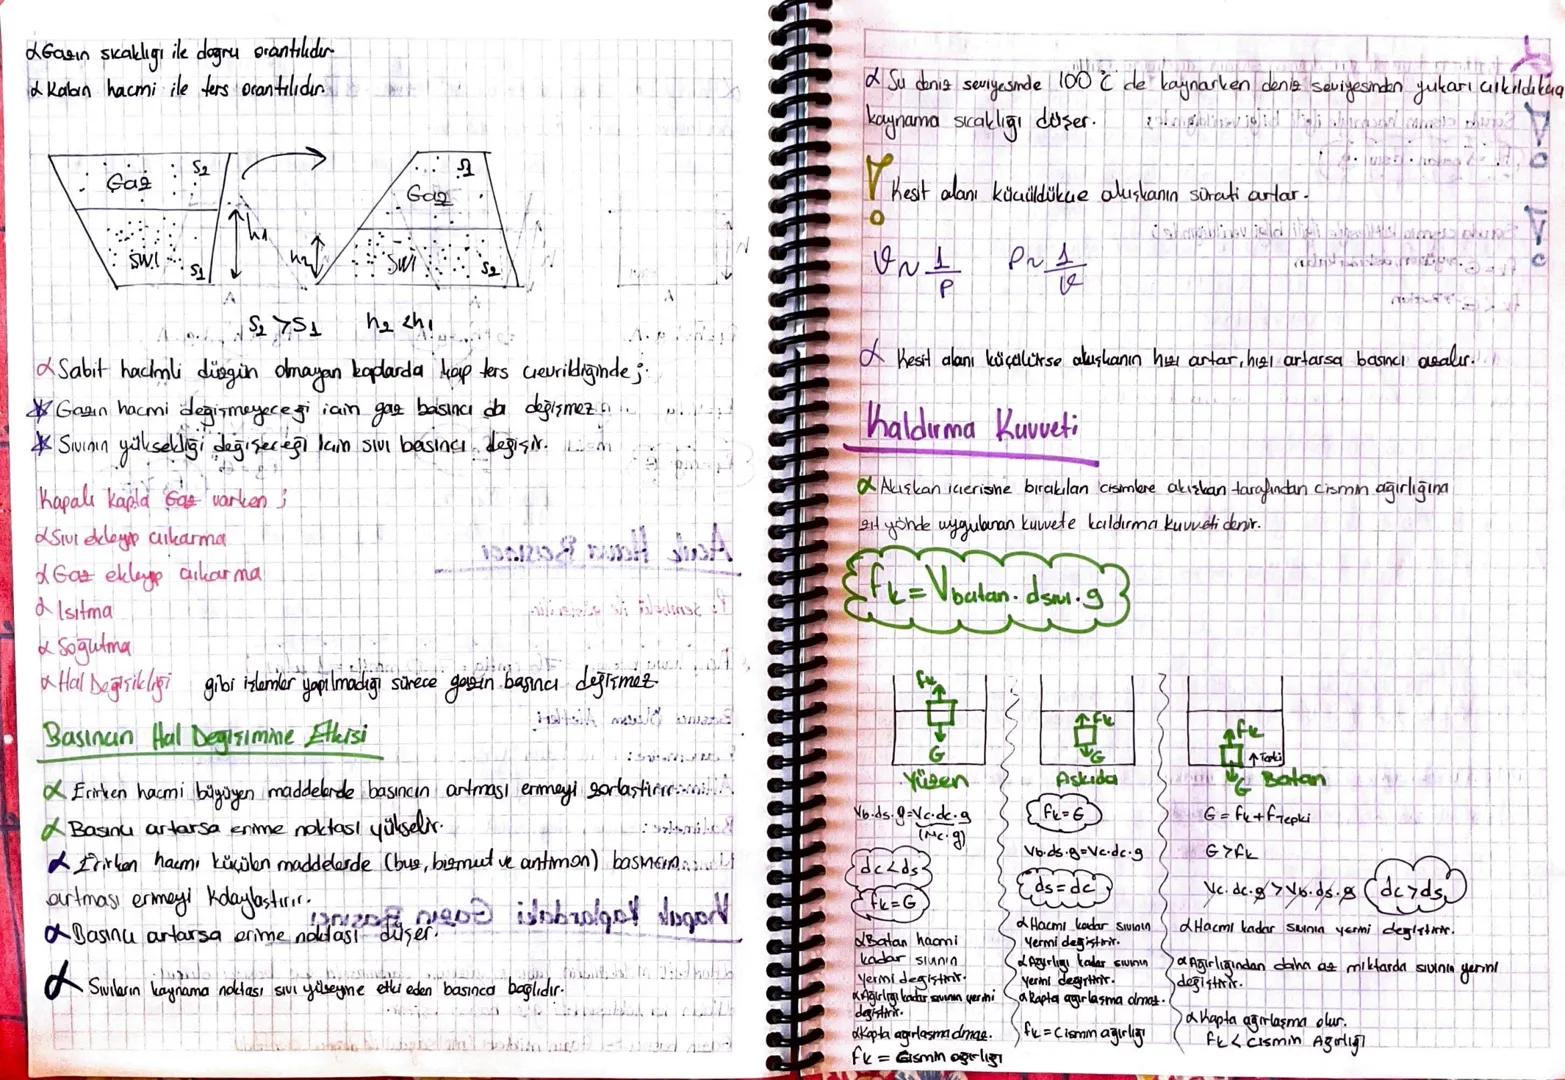 α Gazın sıcaklığı ile doğru orantılıdır
α Kabın hacmi ile ters orantılıdır
Gaz S2
SIVI S1
h1
Gaz S1
SIVI S2
h2
S2 > S1 h2 < h1
α Sabit hacimli düzgün olmayan kaplarda kap ters çevrildiğinde;
* Gazın hacmi değişmeyeceği için gaz basıncı da değişmez
* Sıvının yüksekliği değişeceği için sıvı basıncı değişir.
Kapalı kapta Gaz varken ;
α Sıvı ekleyip çıkarma
α Gaz ekleyip çıkarma
α Isıtma
α Soğutma
α Hal Değişikliği gibi işlemler yapılmadığı sürece gazın basıncı değişmez
Basıncın Hal Değişimine Etkisi
α Erirken hacmi büyüyen maddelerde basıncın artması erimeyi zorlaştırır.
α Basıncı artarsa erime noktası yükselir.
α Erirken hacmi küçülen maddelerde (buz, bizmut ve antimon) basıncın
artması erimeyi kolaylaştırır.
α Basıncı artarsa erime noktası düşer.
α Sıvıların kaynama noktası sıvı yüzeyine etki eden basınca bağlıdır.
α Su deniz seviyesinde 100 °C de kaynarken deniz seviyesinden yukarı çıkıldıkça
kaynama sıcaklığı düşer.
! Kesit alanı küçüldükçe akışkanın sürati artar.
ϑ ~ 1/P P ~ 1/ϑ
α Kesit alanı küçülürse akışkanın hızı artar, hızı artarsa basıncı azalır.
Kaldırma Kuvveti
α Akışkan içerisine bırakılan cisimlere akışkan tarafından cismin ağırlığına
zıt yönde uygulanan kuvvete kaldırma kuvveti denir.
Fk = Vbatan . dsıvı . g
Fk
G
Yüzen
Vb.ds.g = Vc.dc.g
(Mc.g)
dc < ds
Fk = G
α Batan hacmi
kadar sıvının
yerini değiştirir.
α Ağırlığı kadar sıvının yerini
değiştirir.
α Kapta ağırlaşma olmaz.
Fk = Cismin ağırlığı
Fk
G
Askıda
Fk = G
Vb.ds.g = Vc.dc.g
ds = dc
α Hacmi kadar sıvının
yerini değiştirir.
α Ağırlığı kadar sıvının
yerini değiştirir.
α Kapta ağırlaşma olmaz.
Fk = Cismin ağırlığı
Fk
Tepki
G Batan
G = Fk + Ftepki
G > Fk
Vc.dc.g > Vb.ds.g dc > ds
α Hacmi kadar sıvının yerini değiştirir.
α Ağırlığından daha az miktarda sıvının yerini
değiştirir.
α Kapta ağırlaşma olur.
Fk < Cismin Ağırlığı